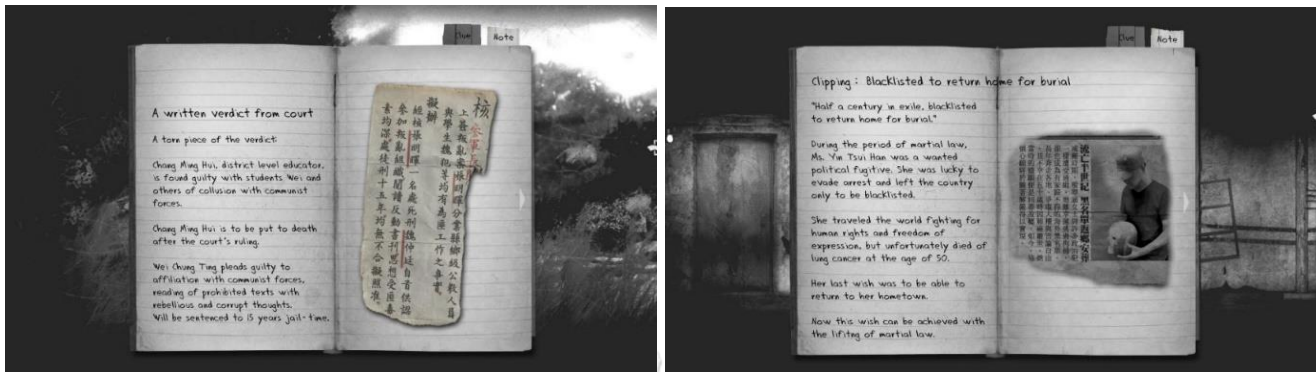 Clue
Note
A written verdict from court
A torn piece of the verdict:
Chang Ming Hui, district level educator,
is found guilty with students Wei and
others of collusion with communist
forces.
Chang Ming Hui is to be put to death
after the court's ruling.
Wei Chung Ting pleads guilty to
affiliation with communist forces,
reading of prohibited texts with
rebellious and corrupt thoughts.
Will be sentenced to 15 years jail-time.
核
叛亂案張明暉分 縣鄉級公教人員
與學生魏犯等均有為匪工作之事實
擬辦
經核張明暉一名處死刑魏仲廷自首供認
參加叛亂組織閱讀反動書刊思想受匪毒
素均深處徒刑十五年均無不合擬照准
Clue
Note
Clipping : Blacklisted to return home for burial
"Half a century in exile, blacklisted
to return home for burial."
During the period of martial law,
Ms. Yin Tsui Han was a wanted
political fugitive. She was lucky to
evade arrest and left the country
only to be blacklisted.
She traveled the world fighting for
human rights and freedom of
expression, but unfortunately died of
lung cancer at the age of 50.
Her last wish was to be able to
return to her hometown.
Now this wish can be achieved with
the lifitng of martial law.
流亡半世紀 黑名單返鄉安葬